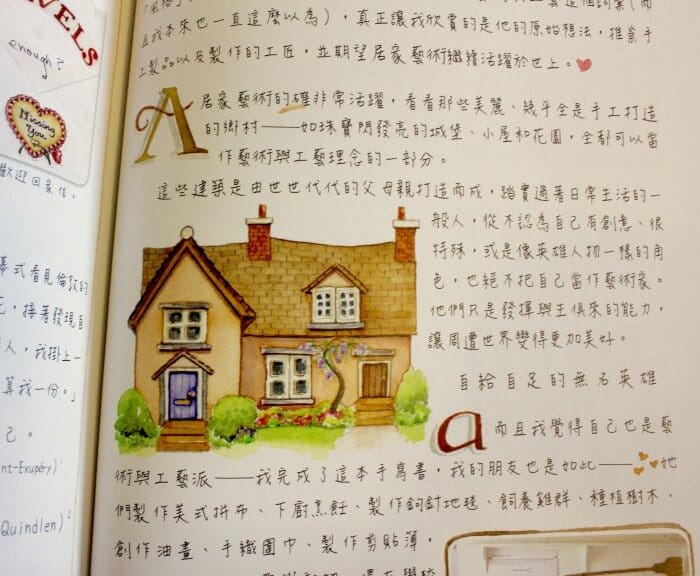 VELS
enough?
Missing You
歡迎回家信。
幕式看見倫敦的
花，接著發現自
人，我掛上一
算我一份。」
己。
nt-Exupéry)¹
Quindlen)²
且我本來也一直這麼以為），真正讓我欣賞的是他的原始想法，推崇手
工製品以及製作的工匠，並期望居家藝術繼續活躍於世上。
A 居家藝術的確非常活躍，看看那些美麗、幾乎全是手工打造
的鄉村——如珠寶閃發亮的城堡、小屋和花園，全都可以當
作藝術與工藝理念的一部分。
這些建築是由世世代代的父母親打造而成，踏實過著日常生活的一
般人，從不認為自己有創意、很
特殊，或是像英雄人物一樣的角
色，也絕不把自己當作藝術家。
他們只是發揮與生俱來的能力，
讓周遭世界變得更加美好。
自給自足的無名英雄
a 而且我覺得自己也是藝
術與工藝派——我完成了這本手寫書，我的朋友也是如此——她
們製作美式拼布、下廚烹飪、製作鉤針地毯、飼養雞群、種植樹木、
創作油畫、手織圍巾、製作剪貼簿，